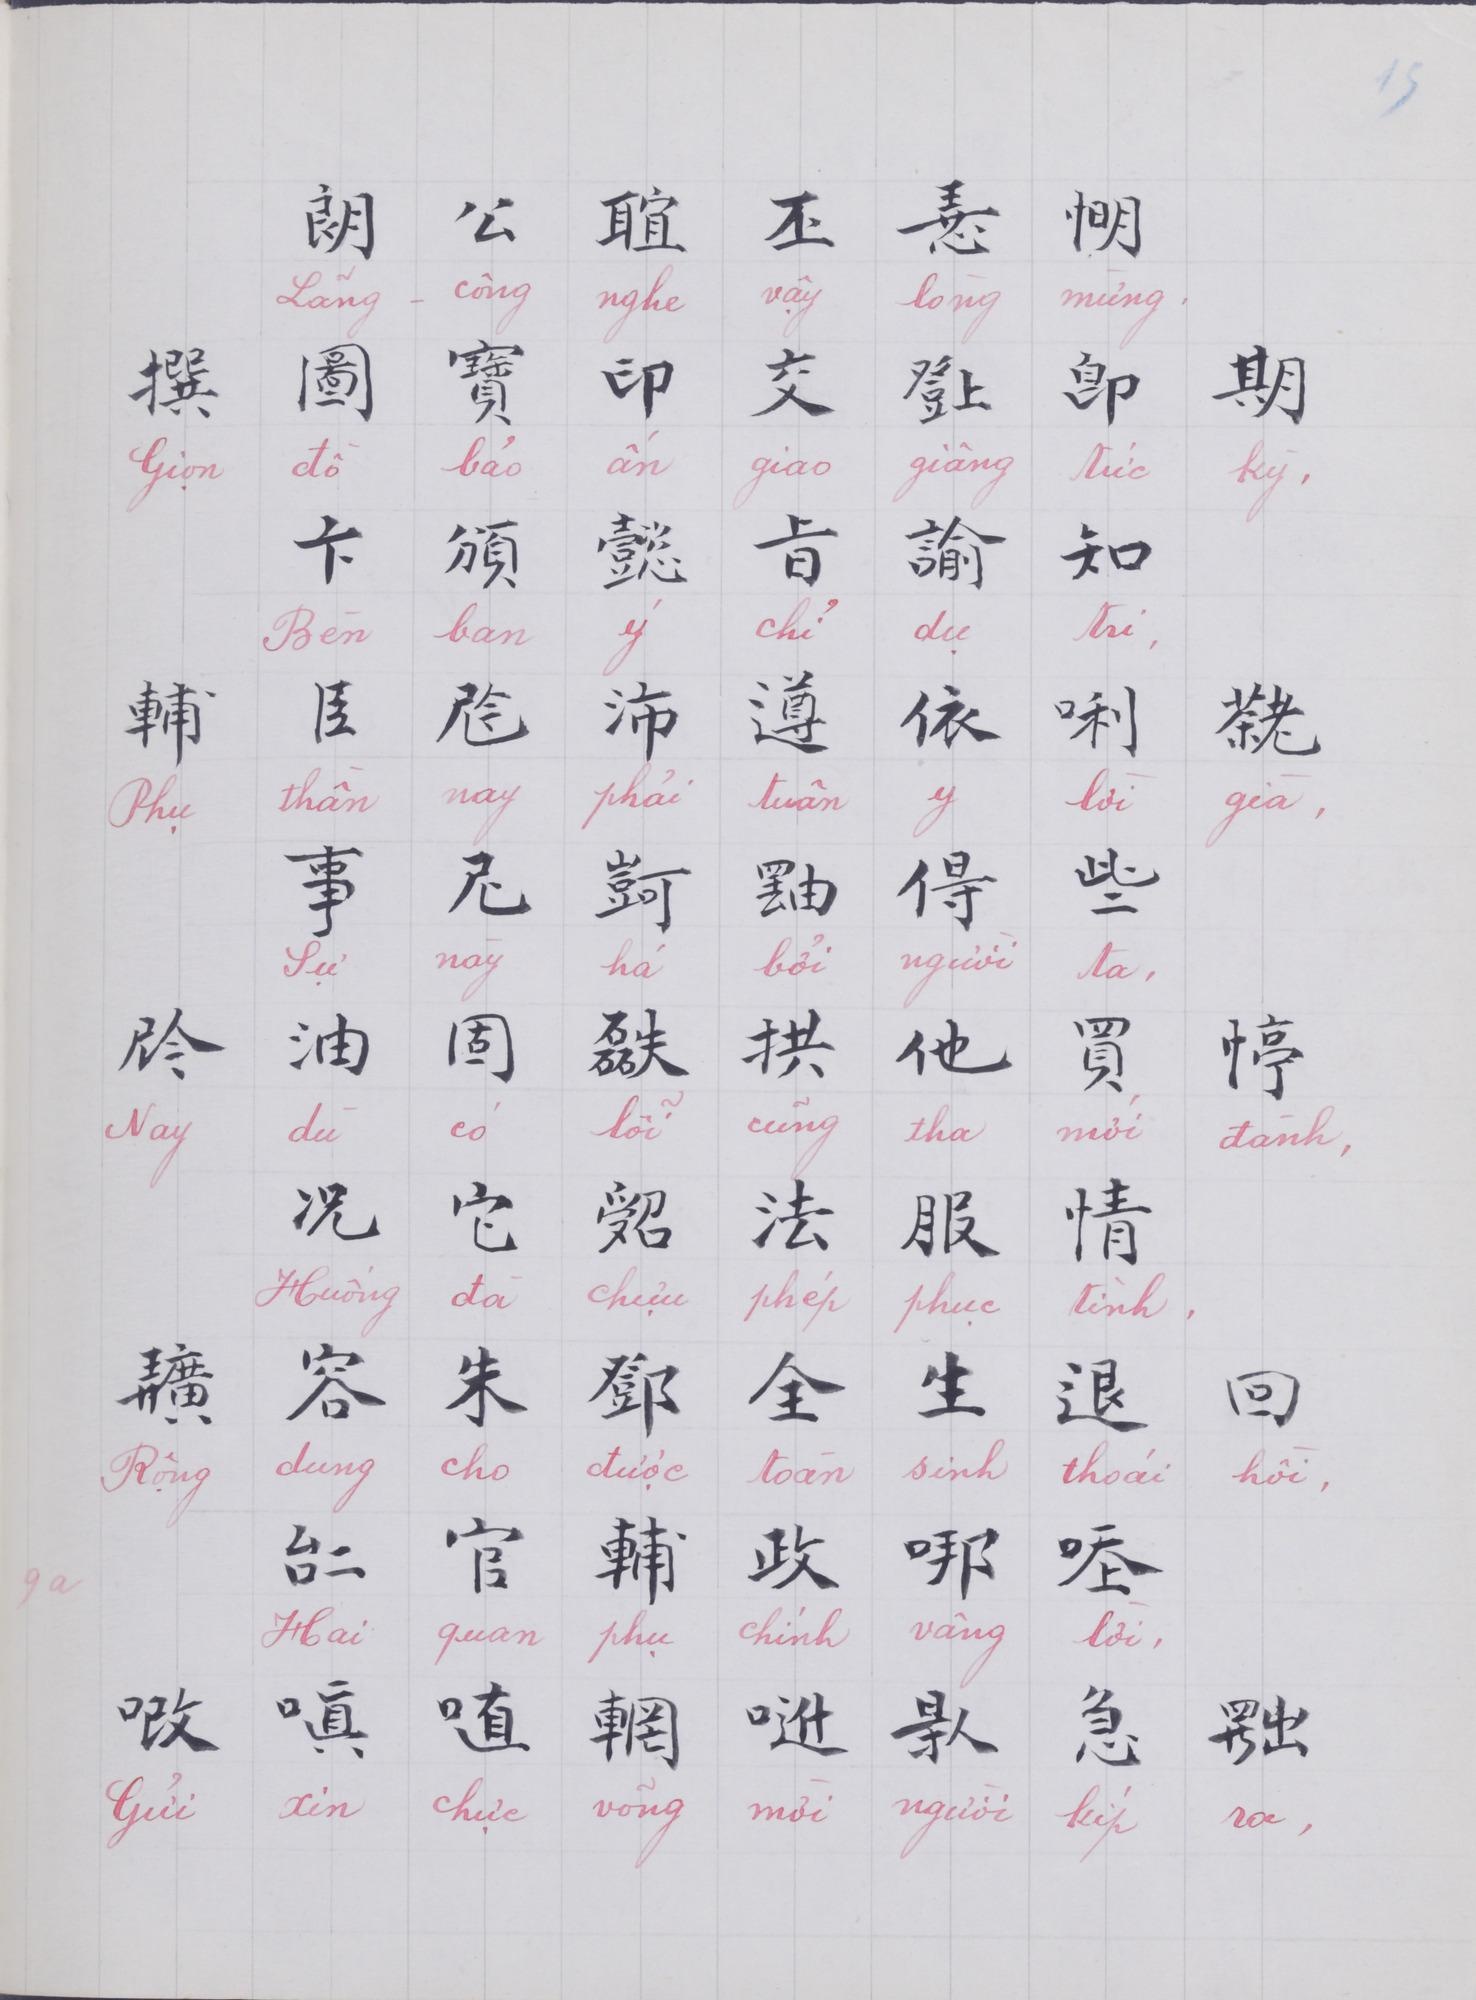 15
朗 公 聢 丕 悪 憪
Lãng - công nghe vậy lòng mừng.
撰 圖 寶 印 交 卽 期
Gịon đồ bảo ấn giao giâng tức kỳ,
卞 頒 懿 旨 諭 知
Bèn ban ý chỉ dụ tri,
輔 臣 沛 遵 依 唎
Phụ thần nay phải tuân y lời già,
事 尼 得 些
Sự này há bởi người ta,
油 固 拱 他 買 停
Nay dù có lỗi cũng tha mới đành,
况 它 法 服 情
Huống đã chựu phép phục tình,
容 朱 鄧 全 生 退 回
Rộng dung cho được toàn sinh thoái hồi,
官 輔 政 哪
Hai quan phụ chính vâng lời,
9a
嗔 輞 急
Gửi xin chực võng mời người kíp ra,